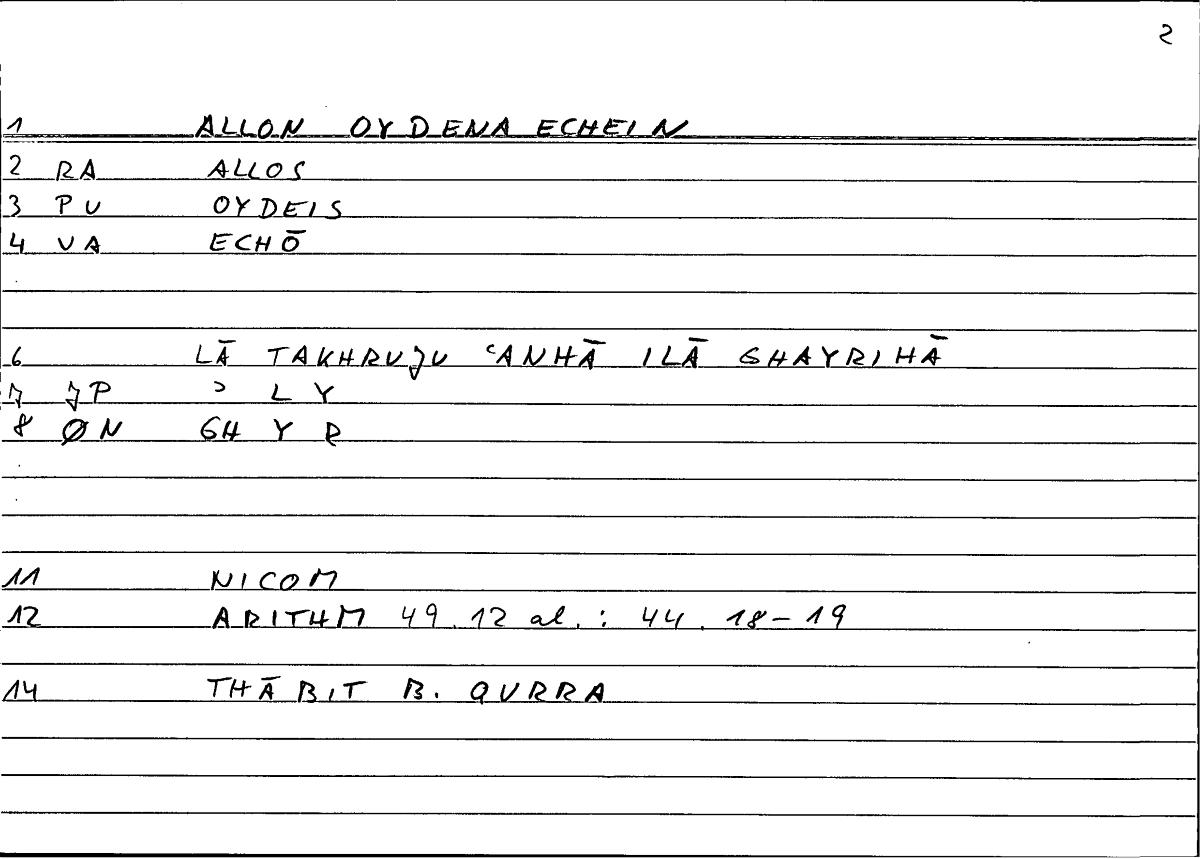 2
1 ALLON OYDENA ECHEIN
2 RA ALLOS
3 PU OYDEIS
4 VA ECHŌ
6 LĀ TAKHRUJU ʿANHĀ ILĀ GHAYRIHĀ
7 JP ʾ L Y
8 ØN GH Y R
11 NICOM
12 ARITHM 49.12 al.: 44.18-19
14 THĀBIT B. QURRA